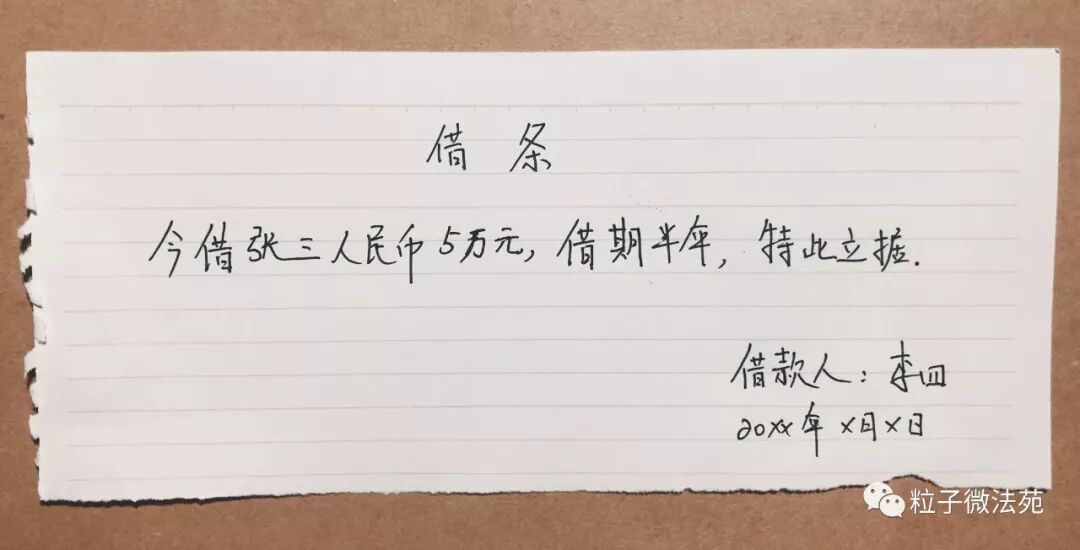 借条
今借张三人民币5万元,借期半年,特此立据.
借款人:李四
20xx年x月x日
粒子微法苑